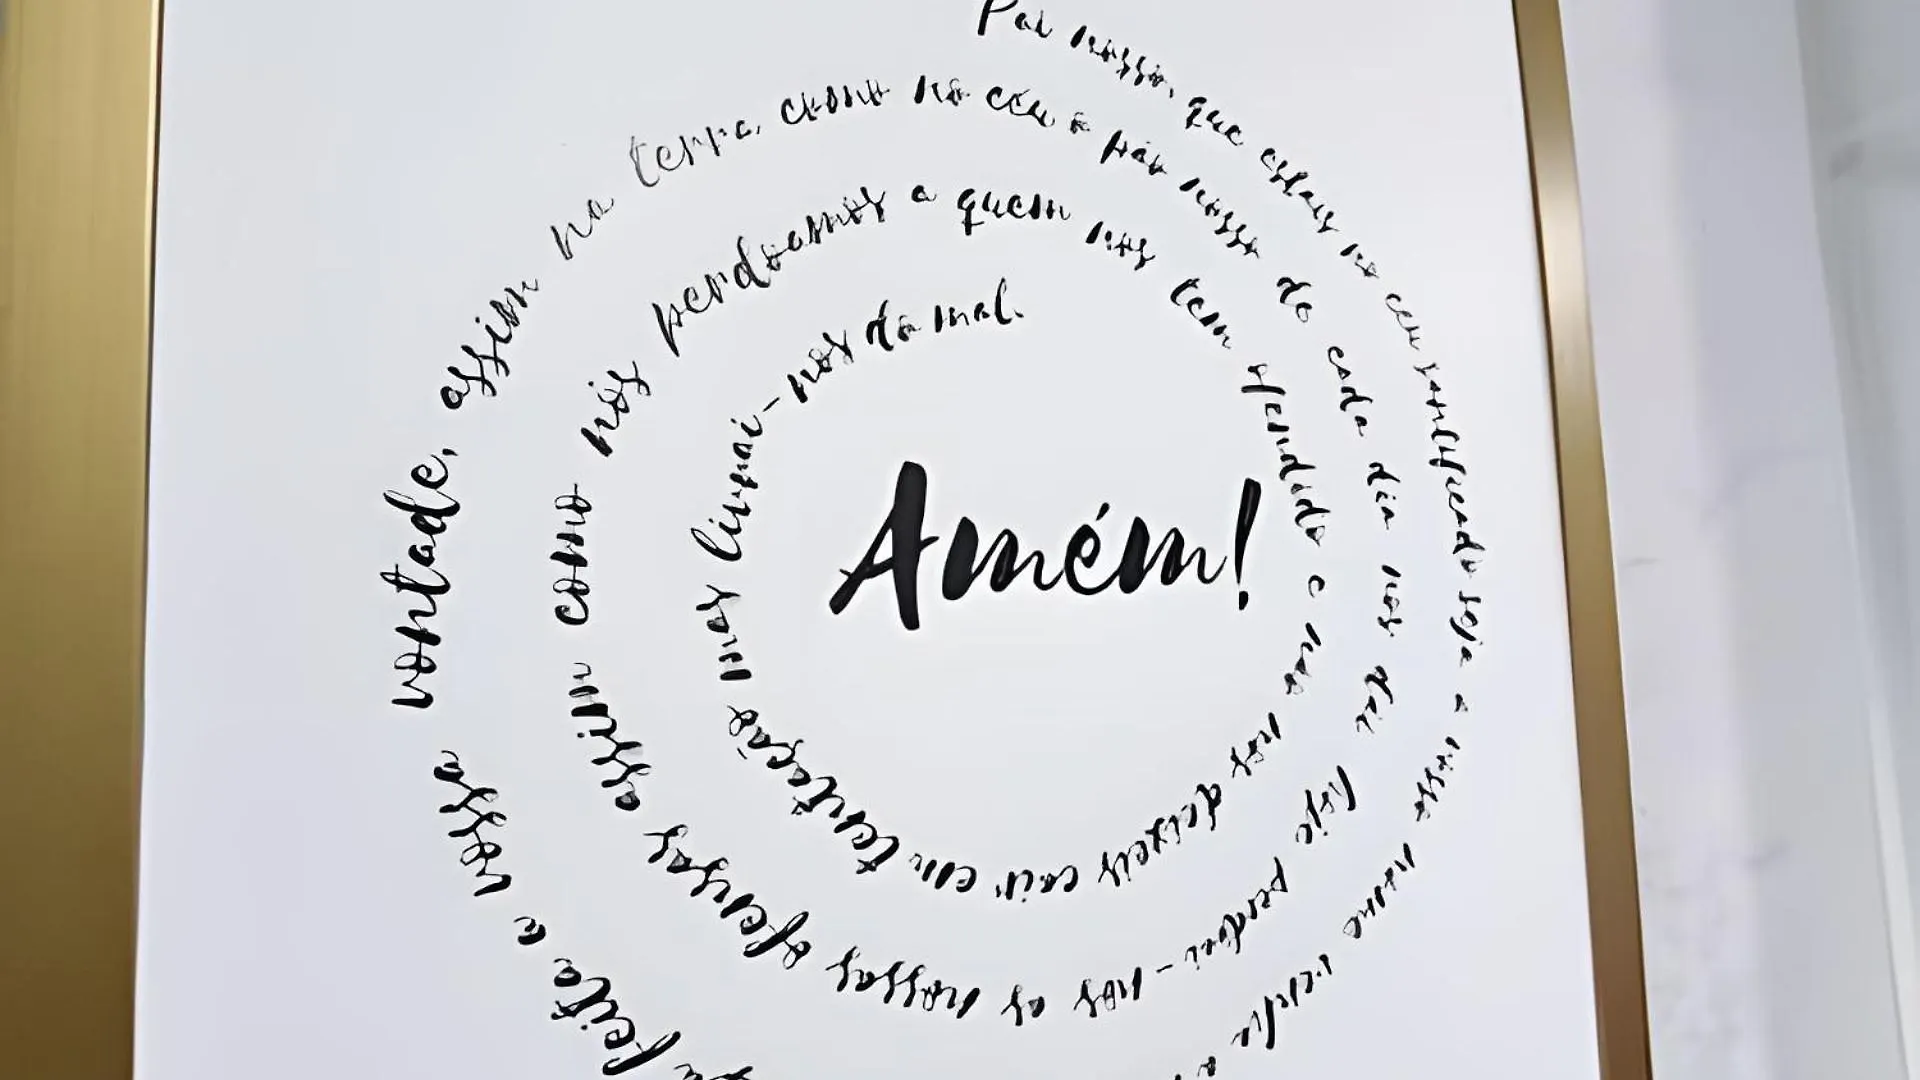 Pai nosso, que estais no ceu santificado seja o vosso nome venha a
feita a vossa vontade, assim na terra, como no céu o pão nosso de cada dia nos dai hoje perdoai-nos as nossas ofensas assim como nós perdoamos a quem nos tem ofendido e não nos deixeis cair em tentação mas livrai-nos do mal.
Amém!